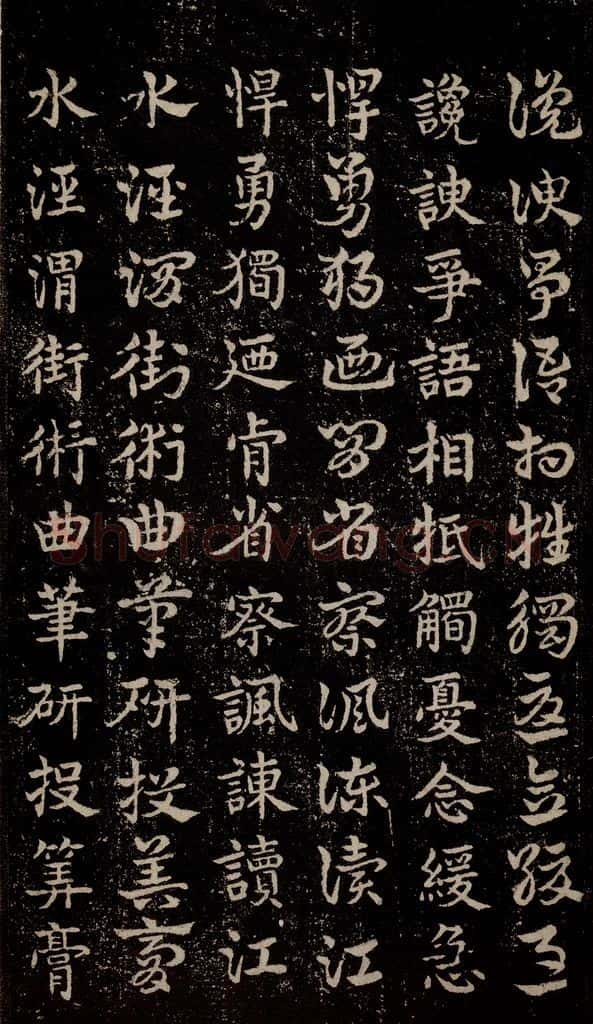 讒諛爭語相牴觸憂念緩急
讒諛爭語相抵觸憂念緩急
悍勇獨迺肯省察諷諫讀江
悍勇獨廼肯省察諷諫讀江
水涇渭街術曲筆研投筭膏
水涇渭街術曲筆研投筭膏
shufawang.cn